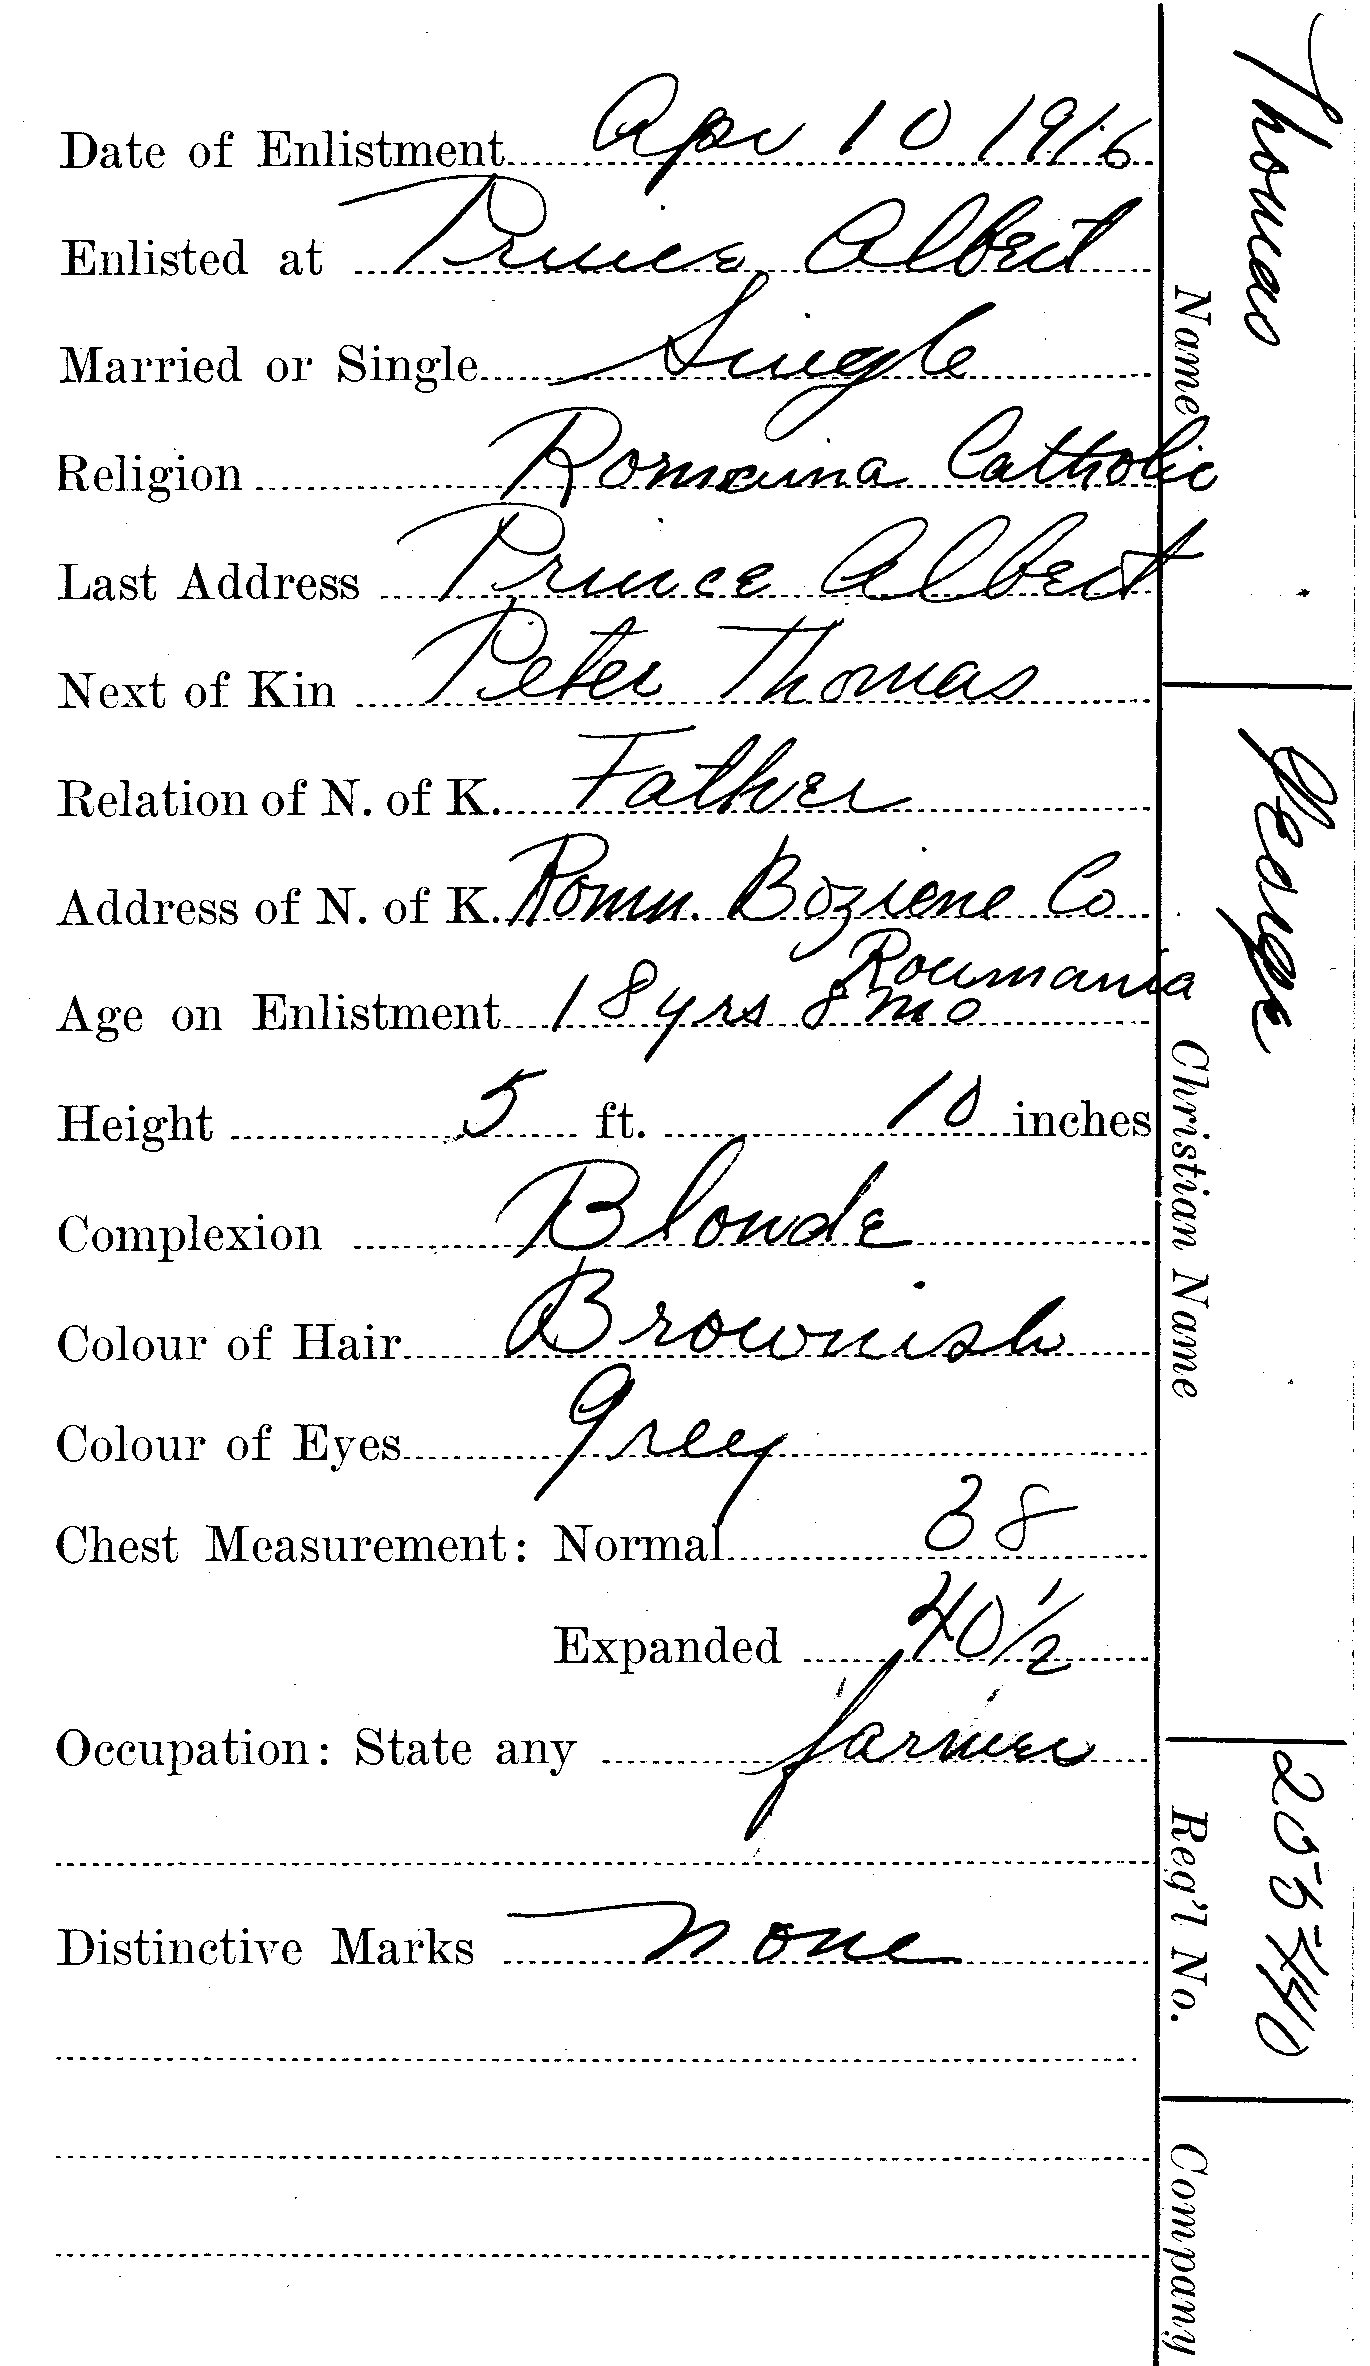 Date of Enlistment Apr 10 1916
Enlisted at Prince Albert
Married or Single Single
Religion Romaina Catholic
Last Address Prince Albert
Next of Kin Peter Thomas
Relation of N. of K. Father
Address of N. of K. Romn. Boziene Co
Roumania
Age on Enlistment 18 yrs 8 mo
Height 5 ft. 10 inches
Complexion Blonde
Colour of Hair Brownish
Colour of Eyes Grey
Chest Measurement: Normal 38
Expanded 40 1/2
Occupation: State any farmer
Distinctive Marks none
Thomas
Name
George
Christian Name
205440
Reg'l No.
Company